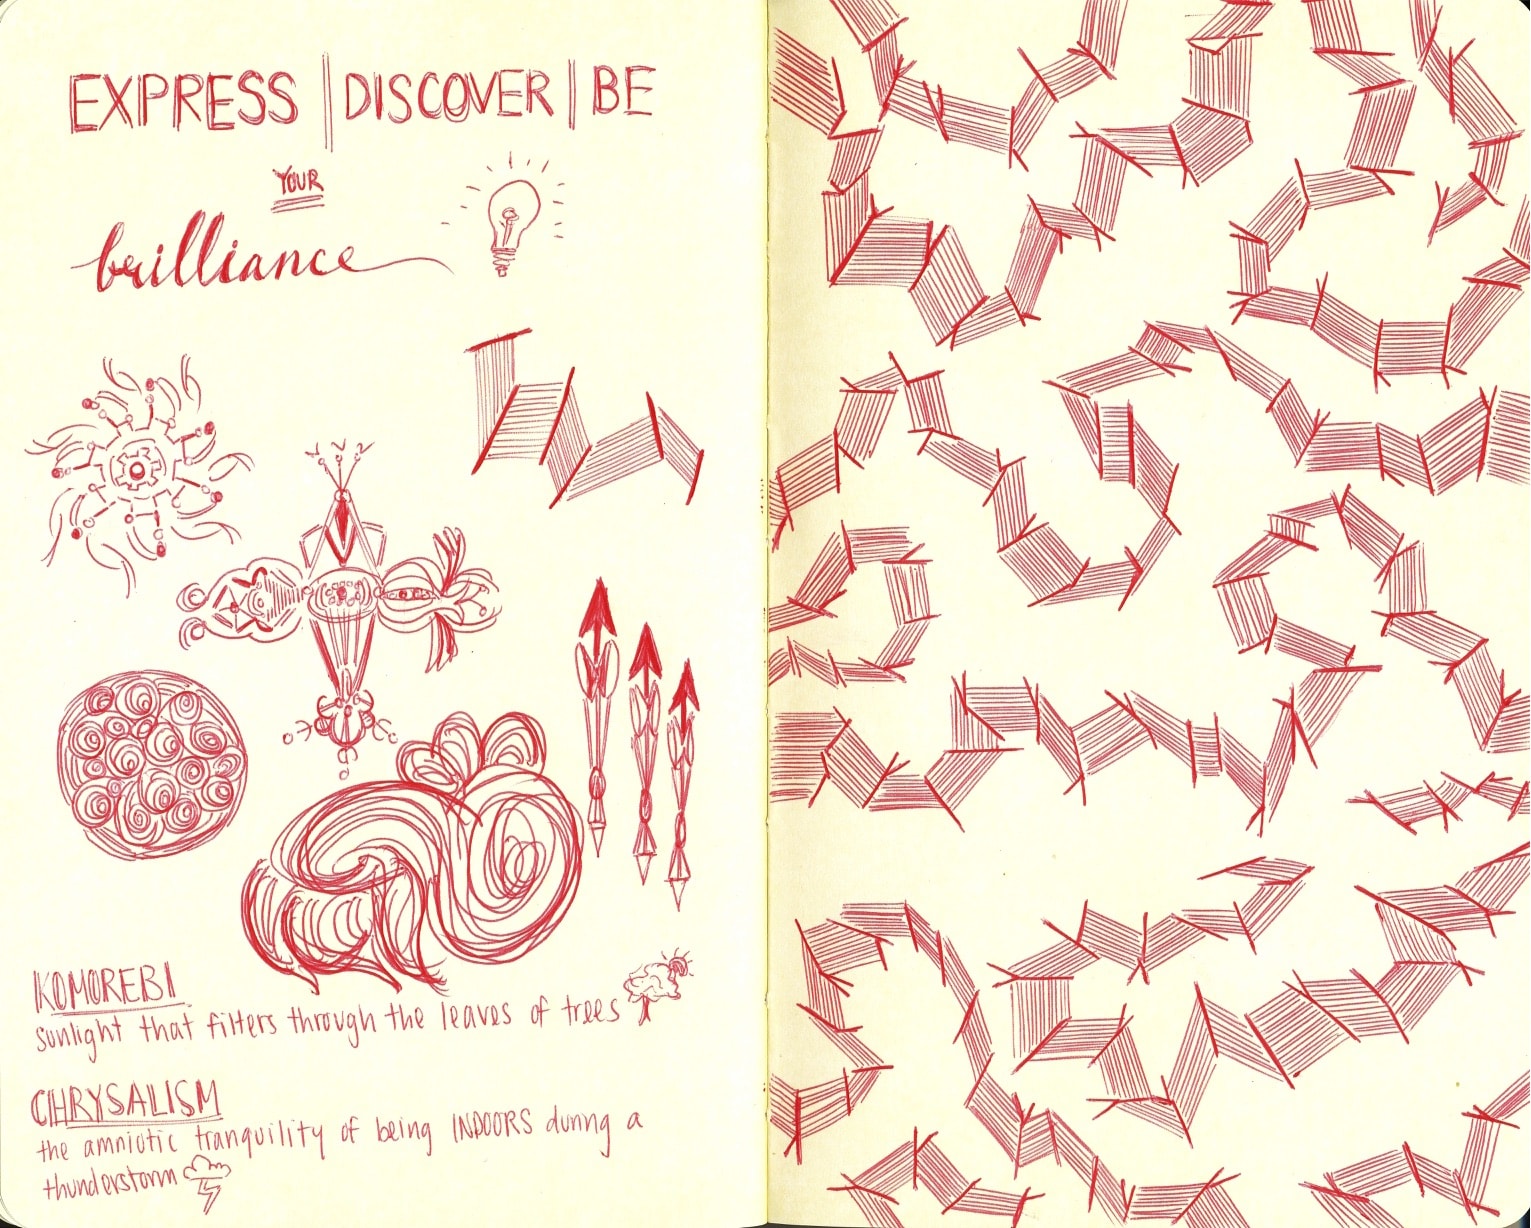 EXPRESS | DISCOVER | BE
YOUR
brilliance
KOMOREBI
sunlight that filters through the leaves of trees
CHRYSALISM
the amniotic tranquility of being INDOORS during a
thunderstorm